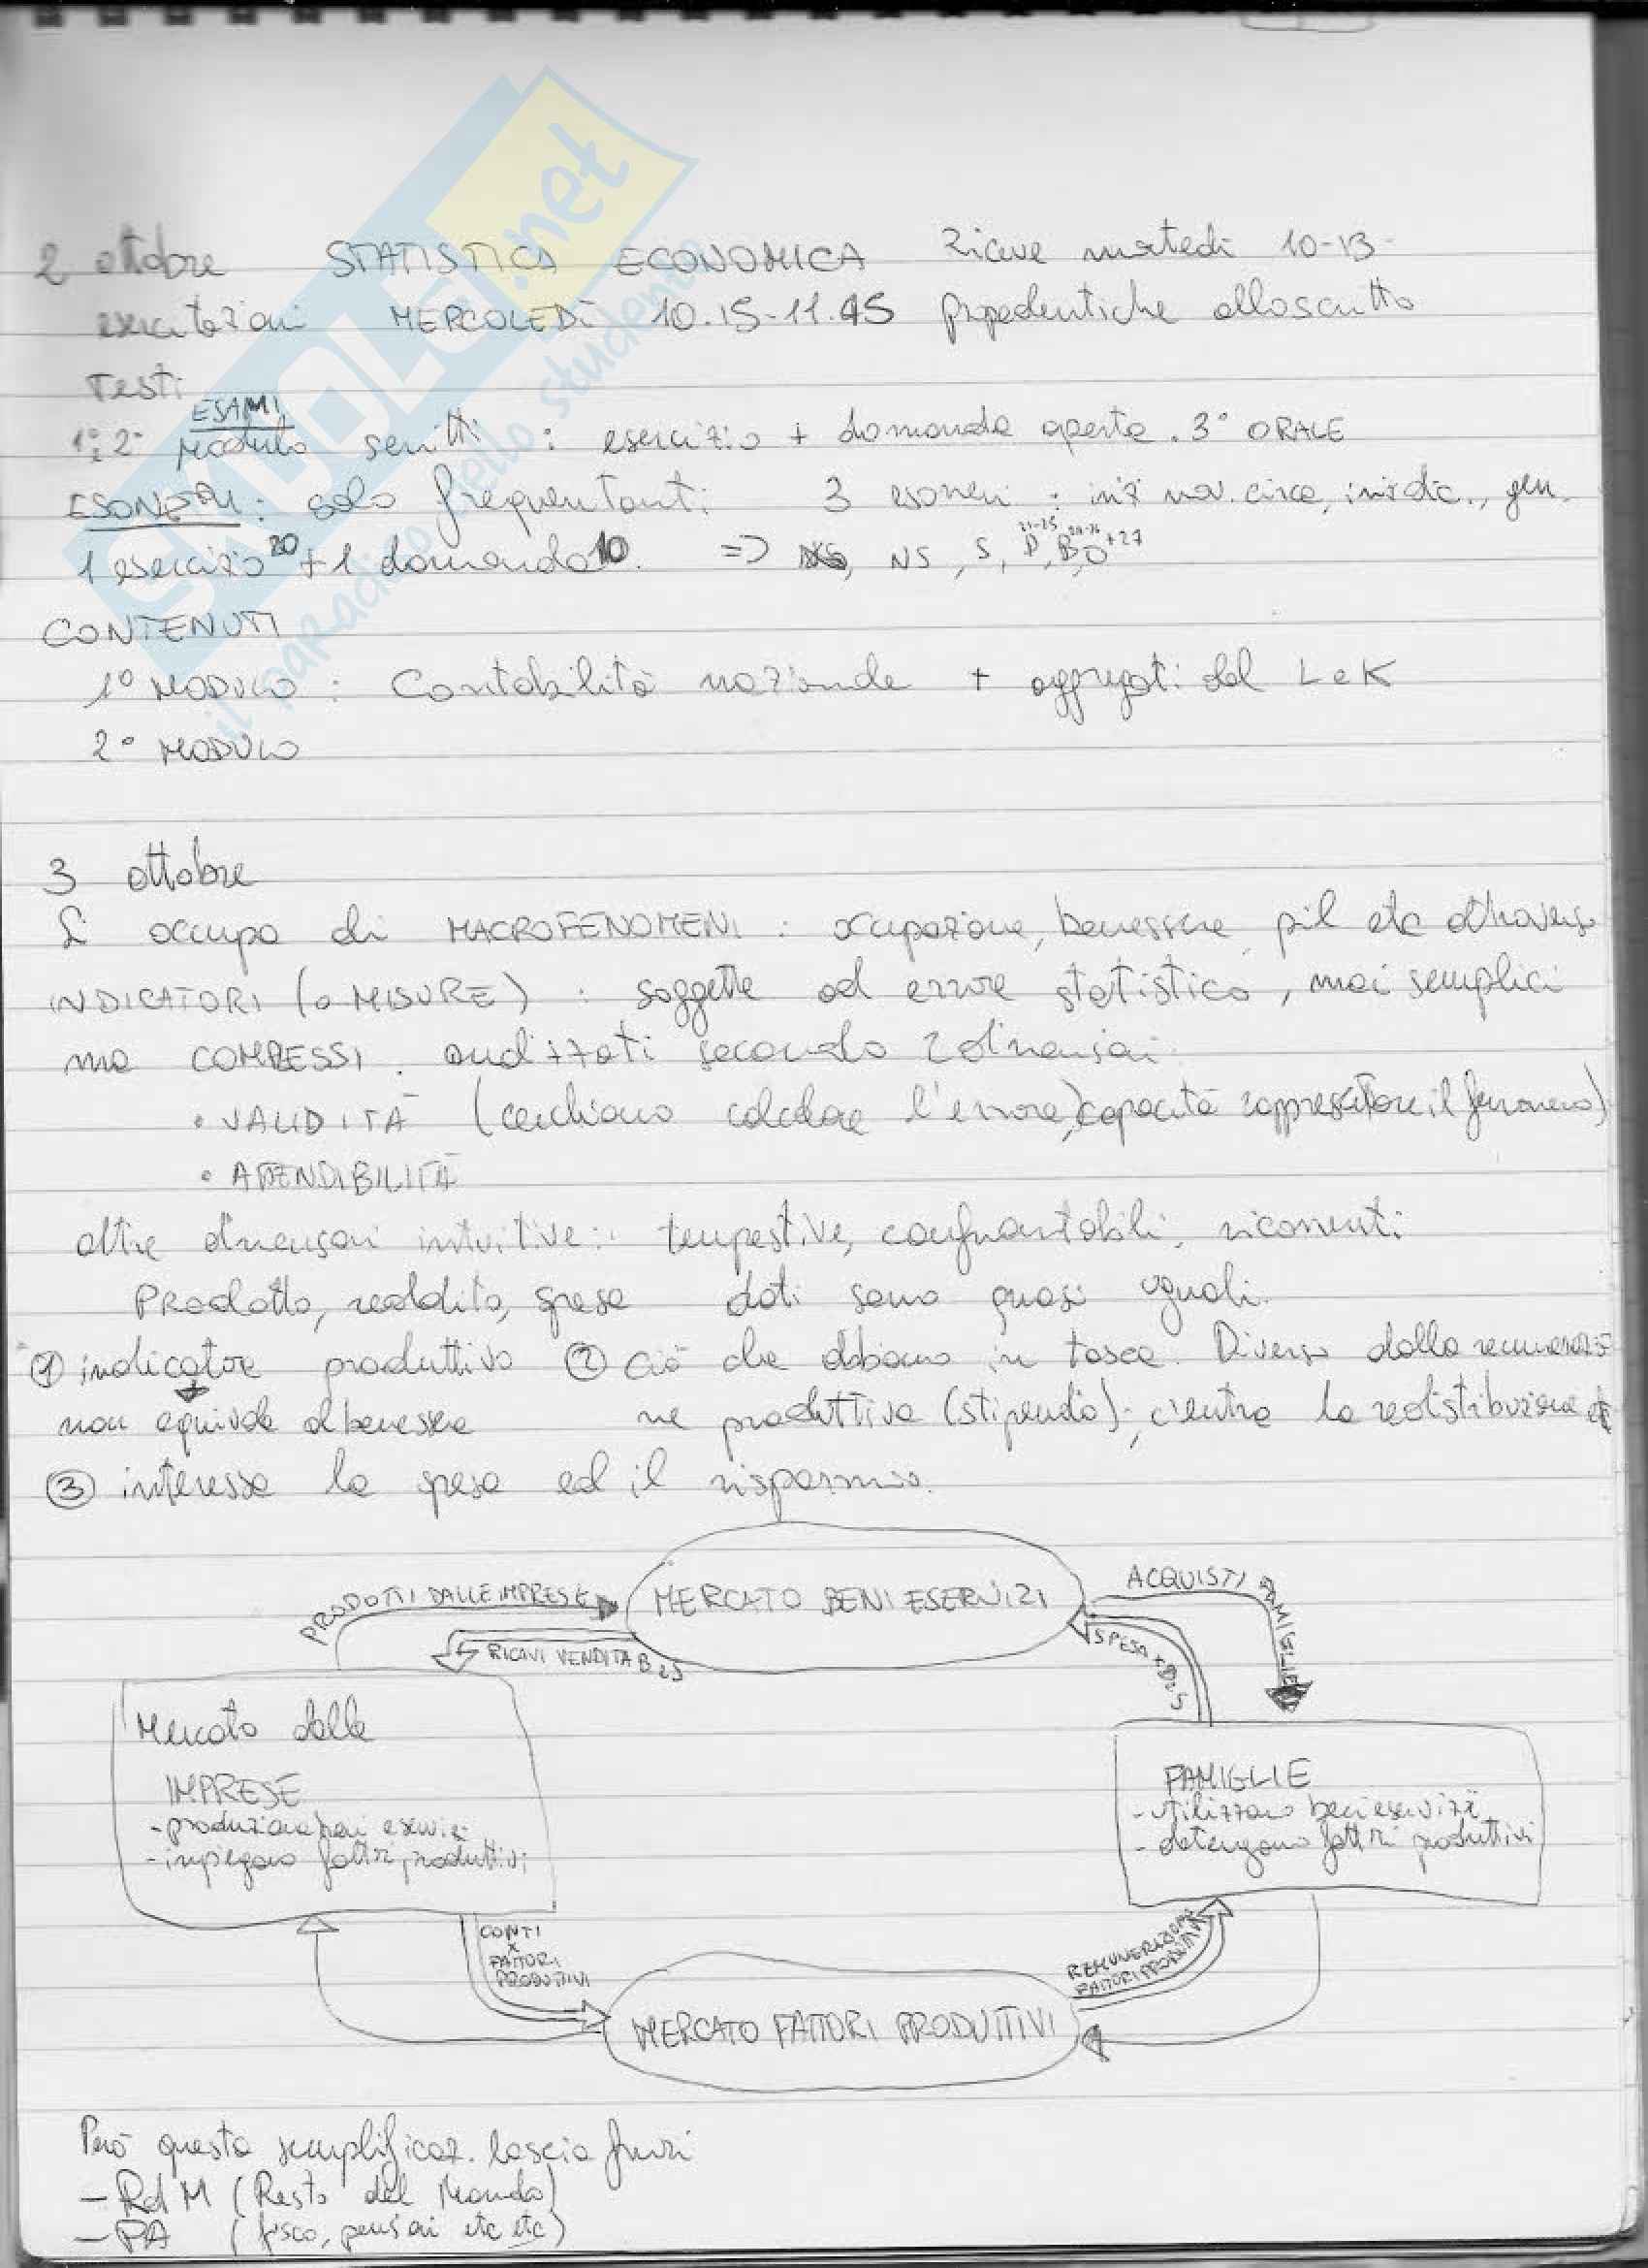 2 ottobre STATISTICA ECONOMICA riceve martedì 10-13
esercitazioni MERCOLEDÌ 10.15-11.45 propedeutiche allo scritto
Testi
ESAMI
1° e 2° Modulo scritti : esercizio + domanda aperta. 3° ORALE
ESONERI : solo frequentanti 3 esoneri : iniz nov. circa, iniz dic., gen.
1 esercizio 20 + 1 domanda 10. => NS, S, D, B, O +27
CONTENUTI
1° MODULO : Contabilità nazionale + aggregati del L e K
2° MODULO
3 ottobre
Si occupa di MACROFENOMENI : occupazione, benessere, pil etc attraverso
INDICATORI (o MISURE) : soggette ad errore statistico, mai semplici
ma COMPLESSI. analizzati secondo 2 dimensioni
• VALIDITÀ (cerchiamo calcolare l'errore, capacità rappresentare il fenomeno)
• ATTENDIBILITÀ
altre dimensioni intuitive: tempestive, confrontabili, ricorrenti
Prodotto, reddito, spesa dati sono quasi uguali.
① indicatore produttivo ② ciò che abbiamo in tasca. Diverso dalla remunerazio
non equivale al benessere ne produttiva (stipendio); c'entra la redistribuzione etc
③ interessa la spesa ed il risparmio.
PRODOTTI DALLE IMPRESE MERCATO BENI E SERVIZI ACQUISTI FAMIGLIE
RICAVI VENDITA B e S SPESA x B e S
Mercato delle
IMPRESE
- produzione beni e servizi
- impiegano fattori produttivi
FAMIGLIE
- utilizzano beni e servizi
- detengono fattori produttivi
CONTI
x
FATTORI
PRODUTTIVI
REMUNERAZIONE
FATTORI PRODUTTIVI
MERCATO FATTORI PRODUTTIVI
Però questa semplificaz. lascia fuori
- RdM (Resto del Mondo)
- PA (fisco, pensioni etc etc)
SKUOLA.net
il paradiso dello studente